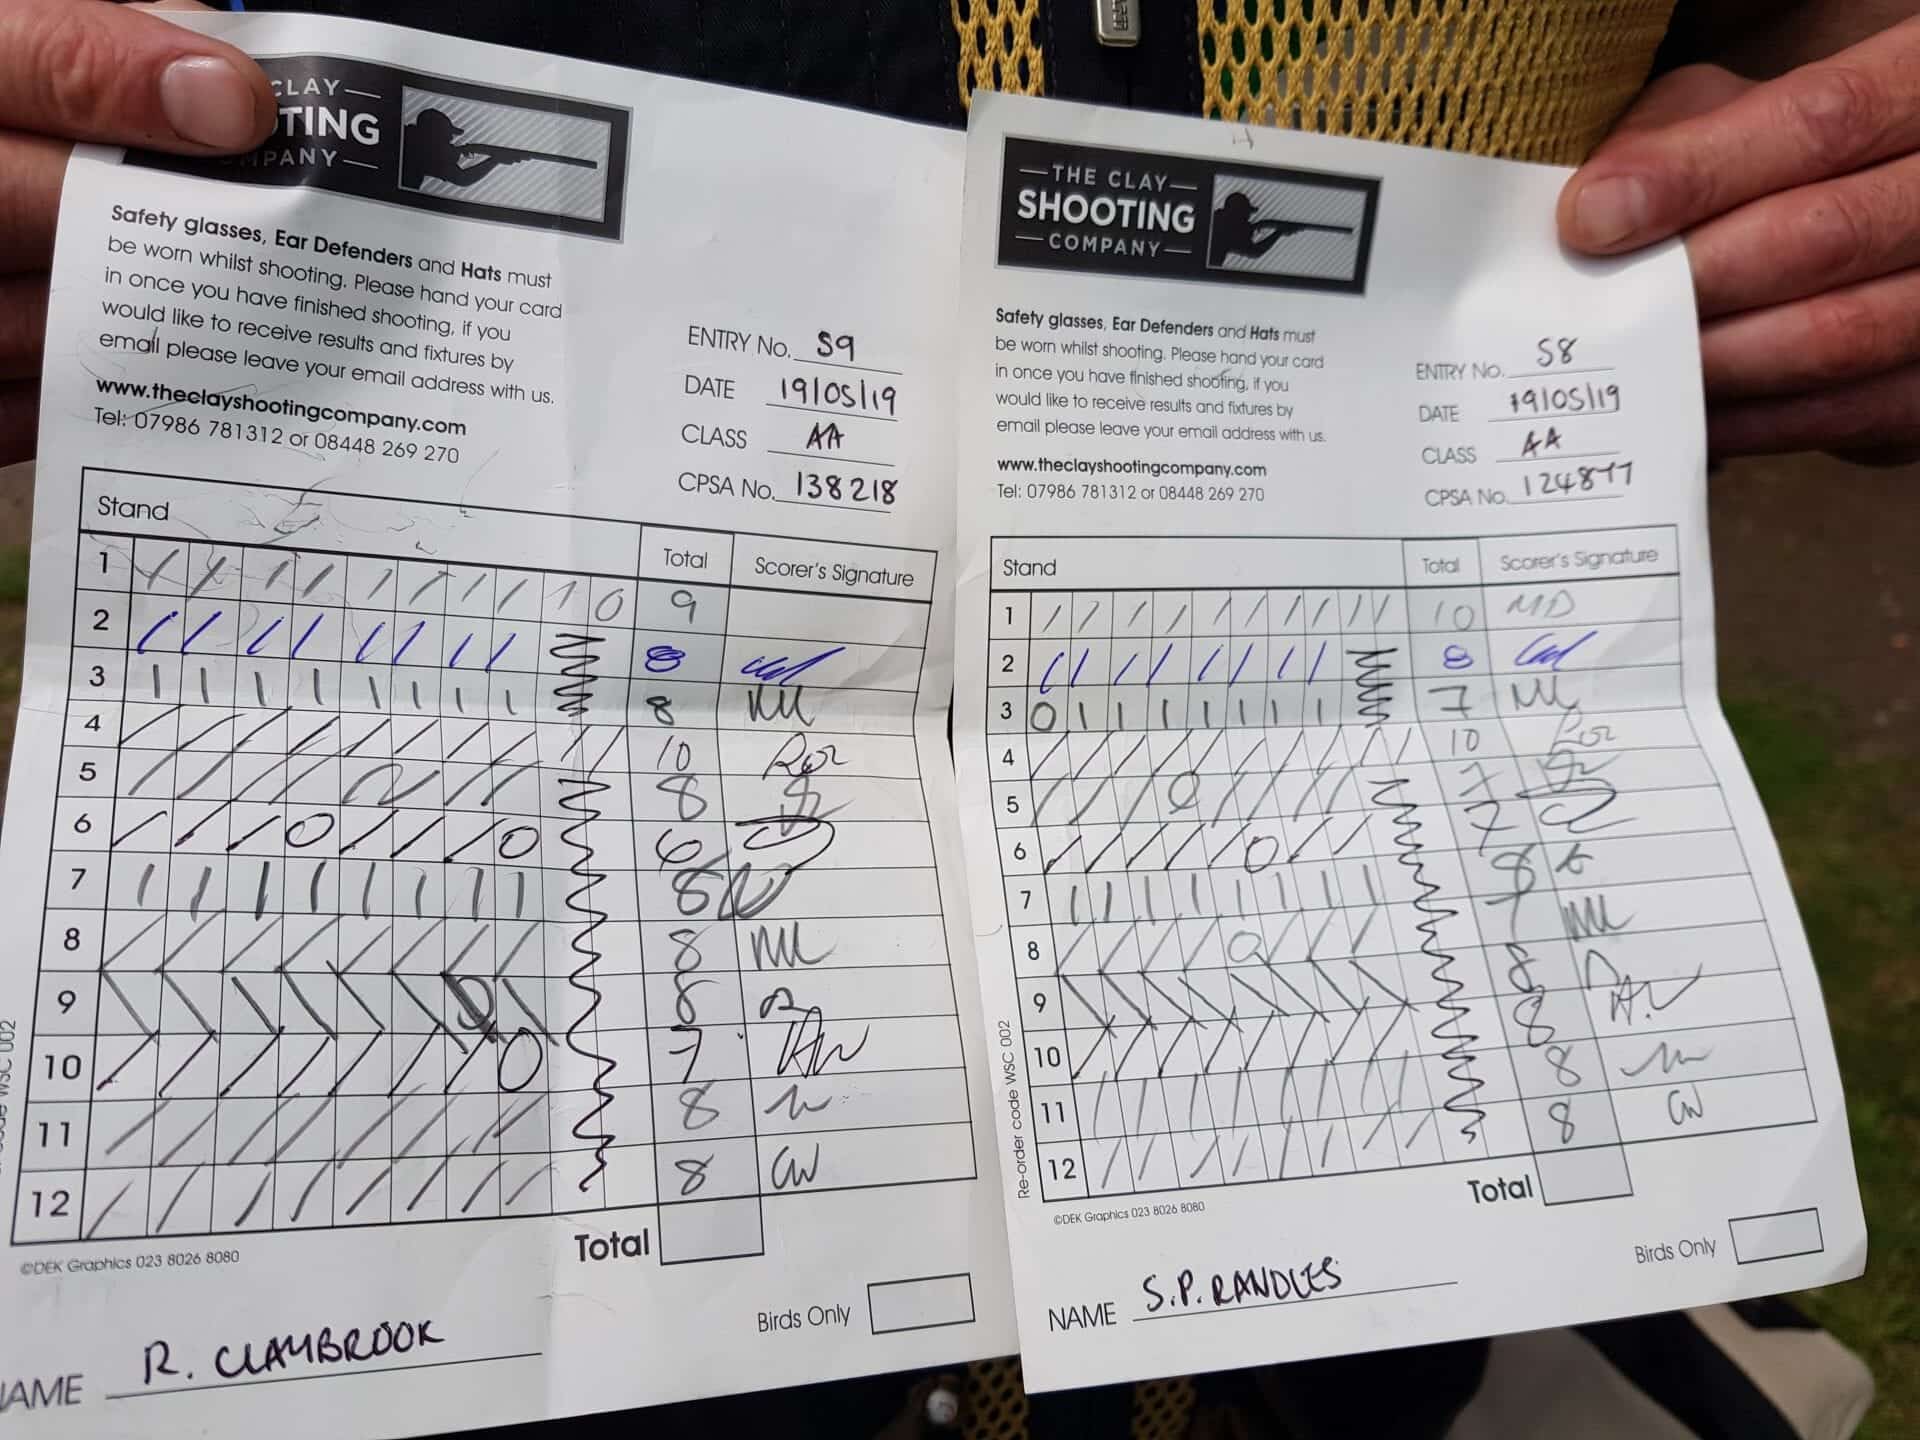 CLAY
TING
MPANY
Safety glasses, Ear Defenders and Hats must
be worn whilst shooting. Please hand your card
in once you have finished shooting, if you
would like to receive results and fixtures by
email please leave your email address with us.
www.theclayshootingcompany.com
Tel: 07986 781312 or 08448 269 270
ENTRY No. 59
DATE 19/05/19
CLASS AA
CPSA No. 138218
Stand Total Scorer's Signature
1 / / / / / / / / / 0 9
2 / / / / / / / / 8
3 / / / / / / / / 8
4 / / / / / / / / / / 10
5 8
6 / / / 0 / / / 0 6
7 / / / / / / / / 8
8 / / / / / / / / 8
9 8
10 / / / / / / / 0 7
11 / / / / / / / / 8
12 / / / / / / / / 8 CW
Total
©DEK Graphics 023 8026 8080
Birds Only
NAME R. CLAYBROOK
THE CLAY
SHOOTING
COMPANY
Safety glasses, Ear Defenders and Hats must
be worn whilst shooting. Please hand your card
in once you have finished shooting, if you
would like to receive results and fixtures by
email please leave your email address with us.
www.theclayshootingcompany.com
Tel: 07986 781312 or 08448 269 270
ENTRY No. 58
DATE 19/05/19
CLASS AA
CPSA No. 124877
Stand Total Scorer's Signature
1 / / / / / / / / / / 10 MD
2 / / / / / / / / 8
3 0 / / / / / / / 7
4 / / / / / / / / / / 10
5 / / / 0 / / / / 7
6 / / / / / 0 / / 7
7 / / / / / / / / 8
8 / / / / 0 / / / 7
9 8
10 / / / / / / / / 8
11 / / / / / / / / 8
12 / / / / / / / / 8 CW
Total
Re-order code WSC 002
©DEK Graphics 023 8026 8080
Birds Only
NAME S.P. RANDLES